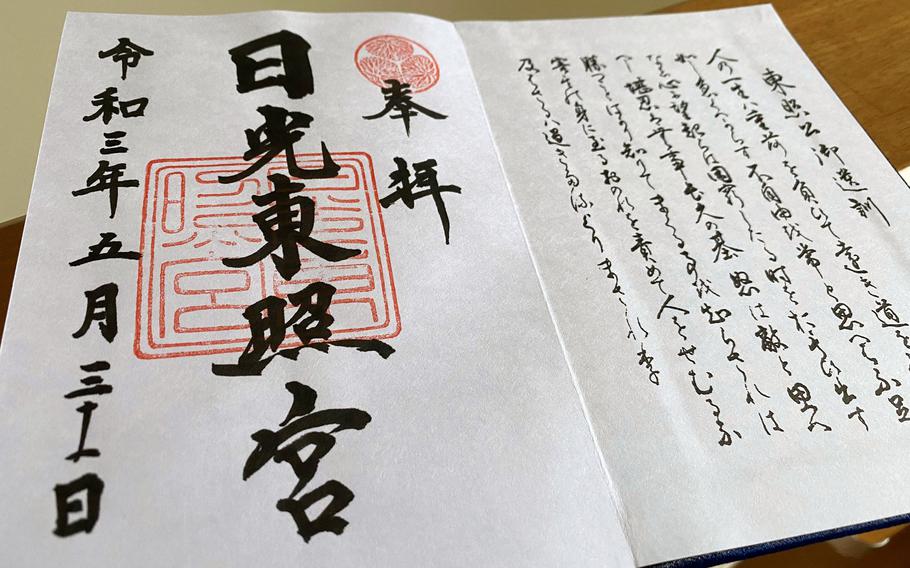 東照公御遺訓
人の一生は重荷を負ひて遠き道を
如し急くへからす不自由を常と思へは不足
なし心に望起らは困窮したる時を思ひ出す
へし堪忍は無事長久の基怒は敵と思へ
勝つことはかり知りてまくる事を知らされは
害其の身に至る己れを責めて人をせむるな
及はさるは過きたるよりまされり
奉拝
日光東照宮
令和三年五月三十一日